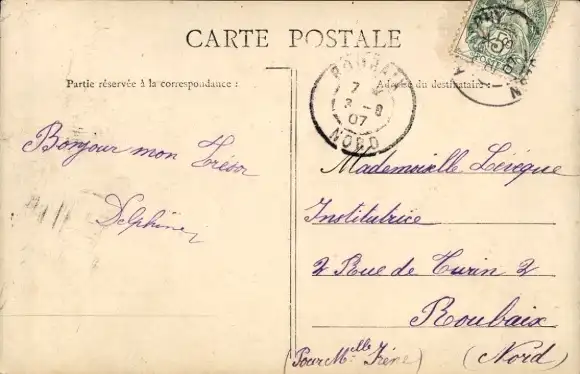 CARTE POSTALE
Partie réservée à la correspondance :
Adresse du destinataire :
7
3-8
07
NORD
Bonjour mon Trésor
Delphine
Mademoiselle Levêque
Institutrice
2 Rue de Turin 2
Roubaix
(Nord)
(Pour Melle Irène)